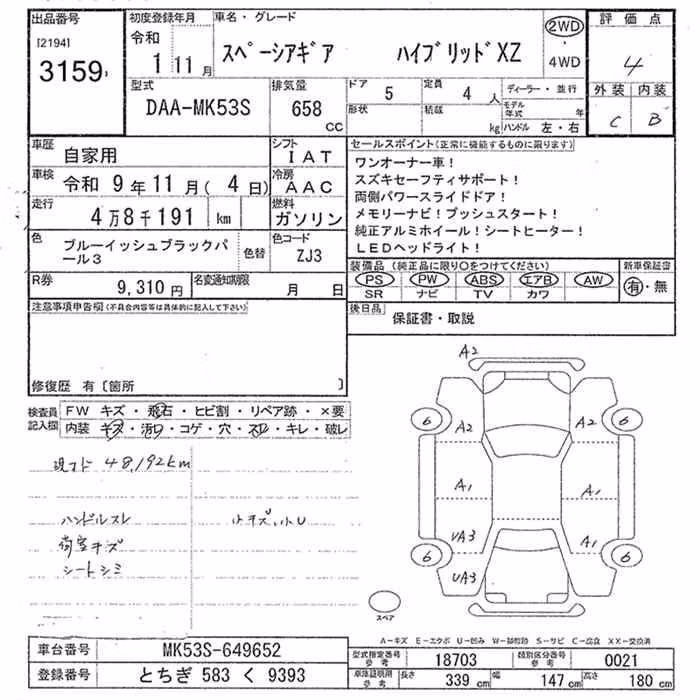 出品番号
[2194]
3159
初度登録年月
令和
1 11月
車名・グレード
スペーシアギア ハイブリッドXZ
2WD
・
4WD
評価点
4
外装 内装
C B
型式
DAA-MK53S
排気量
658
CC
ドア
5
定員
4 人
形状
積載
kg
ディーラー・並行
モデル年式 年
ハンドル 左・右
車歴
自家用
シフト
IAT
車検
令和 9年11月(4日)
冷房
AAC
走行
4万8千191 km
燃料
ガソリン
色
ブルーイッシュブラックパール3
色替
色コード
ZJ3
R券
9,310円
名変通知期限
月 日
セールスポイント(正常に機能するものに限ります)
ワンオーナー車!
スズキセーフティサポート!
両側パワースライドドア!
メモリーナビ!プッシュスタート!
純正アルミホイール!シートヒーター!
LEDヘッドライト!
装備品(純正品に限り〇をつけてください)
PS PW ABS エアB AW
SR ナビ TV カワ
新車保証書
有・無
後日品
保証書・取説
注意事項申告欄(不具合内容等は具体的に記入して下さい)
修復歴 有〔箇所 〕
検査員記入欄
FW キズ・飛石・ヒビ割・リペア跡・×要
内装 キズ・汚レ・コゲ・穴・スレ・キレ・破レ
現フド 48,192km
ハンドルスレ
荷室キズ
シートシミ
小キズ,小U
A2
6 A2 A2 6
A1 A1
UA3 A1
6 6
UA3
スペア
A-キズ E-エクボ U-凹み W-補修跡 S-サビ C-腐食 XX-交換済
車台番号
MK53S-649652
登録番号
とちぎ 583 く 9393
型式指定番号 参考
18703
類別区分番号 参考
0021
車庫証明用 参考
長さ 339 cm 幅 147 cm 高さ 180 cm